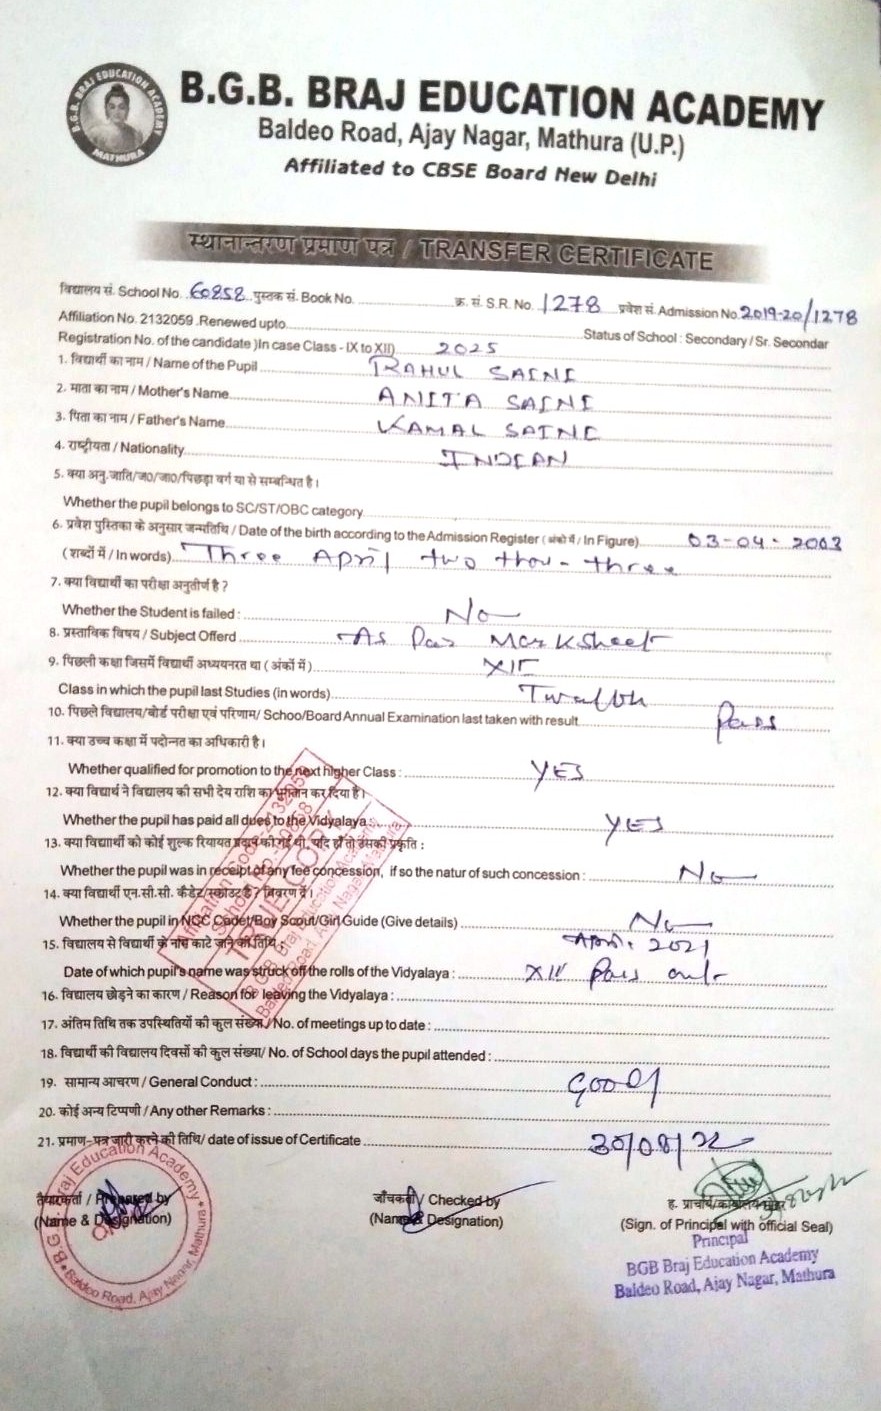 B.G.B. BRAJ EDUCATION ACADEMY
MATHURA
B.G.B. BRAJ EDUCATION ACADEMY
Baldeo Road, Ajay Nagar, Mathura (U.P.)
Affiliated to CBSE Board New Delhi
स्थानान्तरण प्रमाण पत्र / TRANSFER CERTIFICATE
विद्यालय सं. School No. 60858 पुस्तक सं. Book No. क्र. सं. S.R. No. 1278 प्रवेश सं. Admission No. 2019-20/1278
Affiliation No. 2132059 .Renewed upto Status of School : Secondary / Sr. Secondar
Registration No. of the candidate )In case Class - IX to XII) 2025
1. विद्यार्थी का नाम / Name of the Pupil RAHUL SAINI
2. माता का नाम / Mother's Name ANITA SAINI
3. पिता का नाम / Father's Name KAMAL SAINI
4. राष्ट्रीयता / Nationality INDIAN
5. क्या अनु.जाति/ज0/जा0/पिछड़ा वर्ग या से सम्बन्धित है।
Whether the pupil belongs to SC/ST/OBC category
6. प्रवेश पुस्तिका के अनुसार जन्मतिथि / Date of the birth according to the Admission Register ( अंको में / In Figure) 03-04-2003
( शब्दों में / In words) Three April two thou-three
7. क्या विद्यार्थी का परीक्षा अनुतीर्ण है ?
Whether the Student is failed : No
8. प्रस्ताविक विषय / Subject Offerd As Per Marksheet
9. पिछली कक्षा जिसमें विद्यार्थी अध्ययनरत था ( अंकों में ) XII
Class in which the pupil last Studies (in words) Twelfth
10. पिछले विद्यालय/बोर्ड परीक्षा एवं परिणाम/ Schoo/Board Annual Examination last taken with result Pass
11. क्या उच्च कक्षा में पदोन्नत का अधिकारी है।
Whether qualified for promotion to the next higher Class : YES
12. क्या विद्यार्थ ने विद्यालय की सभी देय राशि का भुगतान कर दिया है।
Whether the pupil has paid all dues to the Vidyalaya : YES
13. क्या विद्यार्थी को कोई शुल्क रियायत प्रदान की गई थी, यदि हाँ तो उसकी प्रकृति :
Whether the pupil was in receipt of any fee concession, if so the natur of such concession : No
14. क्या विद्यार्थी एन.सी.सी. कैडेट/स्काउट है ? विवरण दें।
Whether the pupil in NCC Cadet/Boy Scout/Girl Guide (Give details) No
15. विद्यालय से विद्यार्थी के नाम काटे जाने की तिथि : April 2021
Date of which pupil's name was struck off the rolls of the Vidyalaya : XII Pass out
16. विद्यालय छोड़ने का कारण / Reason for leaving the Vidyalaya :
17. अंतिम तिथि तक उपस्थितियों की कुल संख्या / No. of meetings up to date :
18. विद्यार्थी की विद्यालय दिवसों की कुल संख्या/ No. of School days the pupil attended :
19. सामान्य आचरण / General Conduct : Good
20. कोई अन्य टिप्पणी / Any other Remarks :
21. प्रमाण-पत्र जारी करने की तिथि/ date of issue of Certificate 30/08/22
Affiliation Code-2132059
School No.-60858
BGB Braj Education Academy
Baldeo Road, Ajay Nagar, Mathura
तैयारकर्ता / Prepared by जाँचकर्ता / Checked by
(Name & Designation) (Name & Designation) (Sign. of Principal with official Seal)
B.G.B. Braj Education Academy
Baldeo Road, Ajay Nagar, Mathura
Principal
BGB Braj Education Academy
Baldeo Road, Ajay Nagar, Mathura